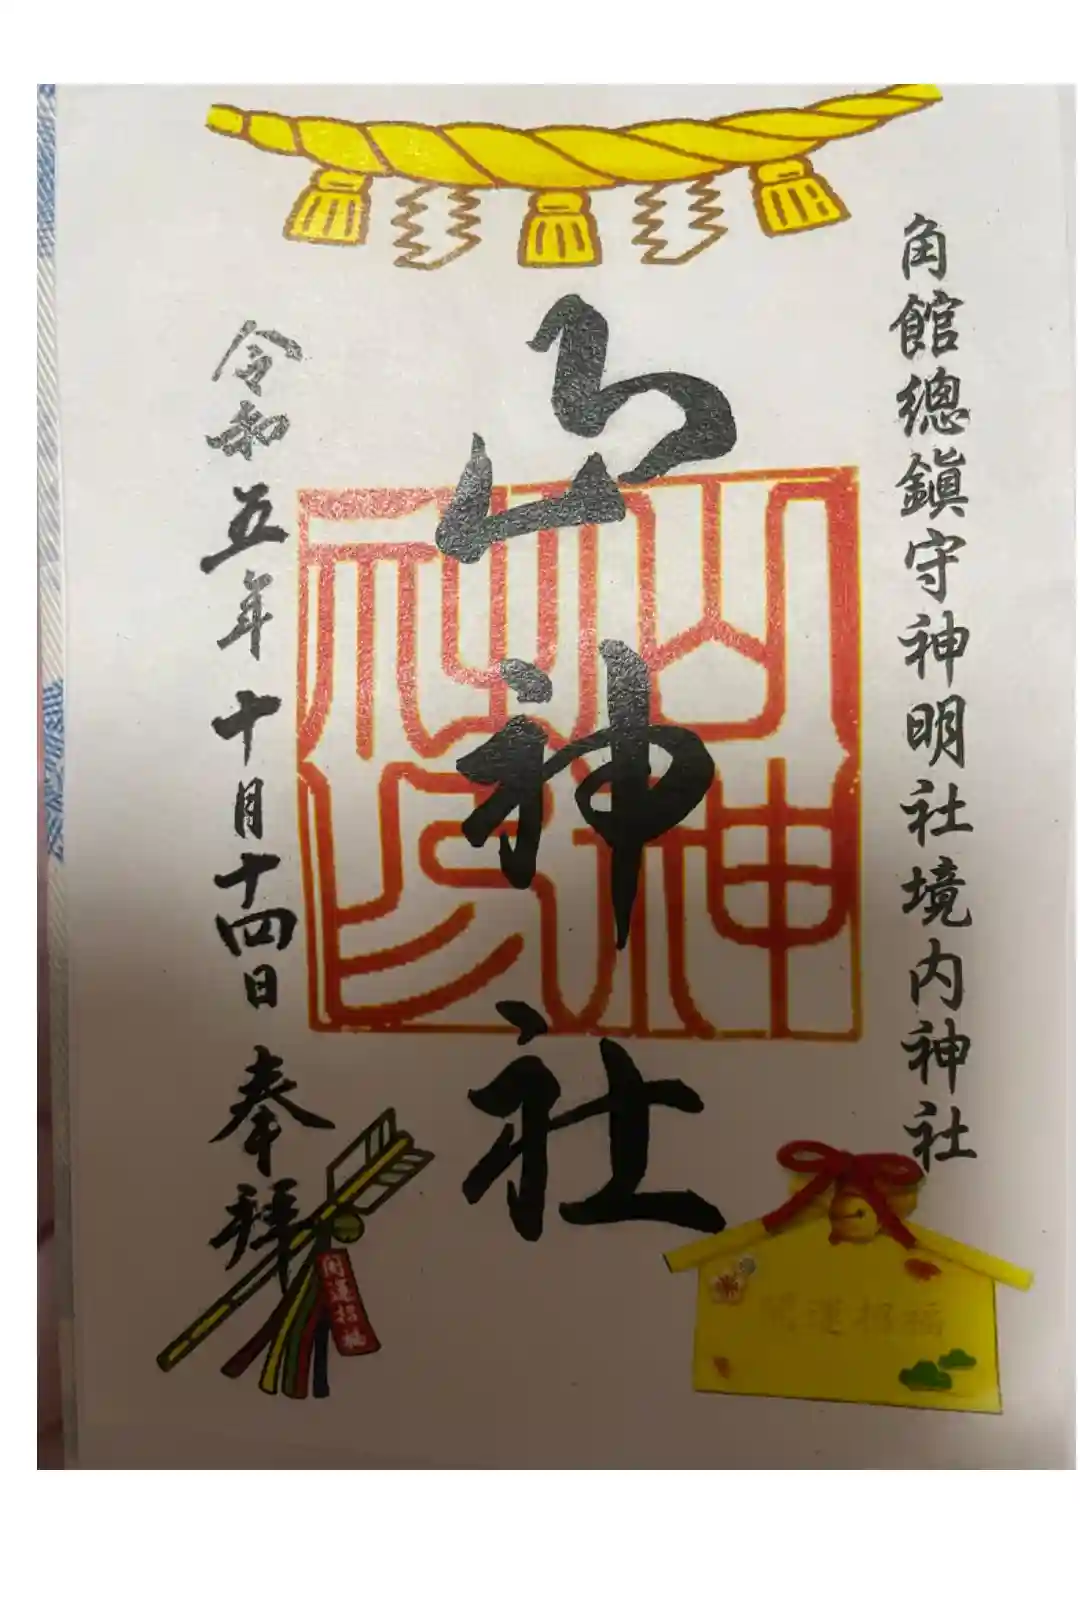 角館總鎮守神明社境内神社
山神社
山神
社神印
令和五年十月十四日 奉拝
開運招福
開運招福